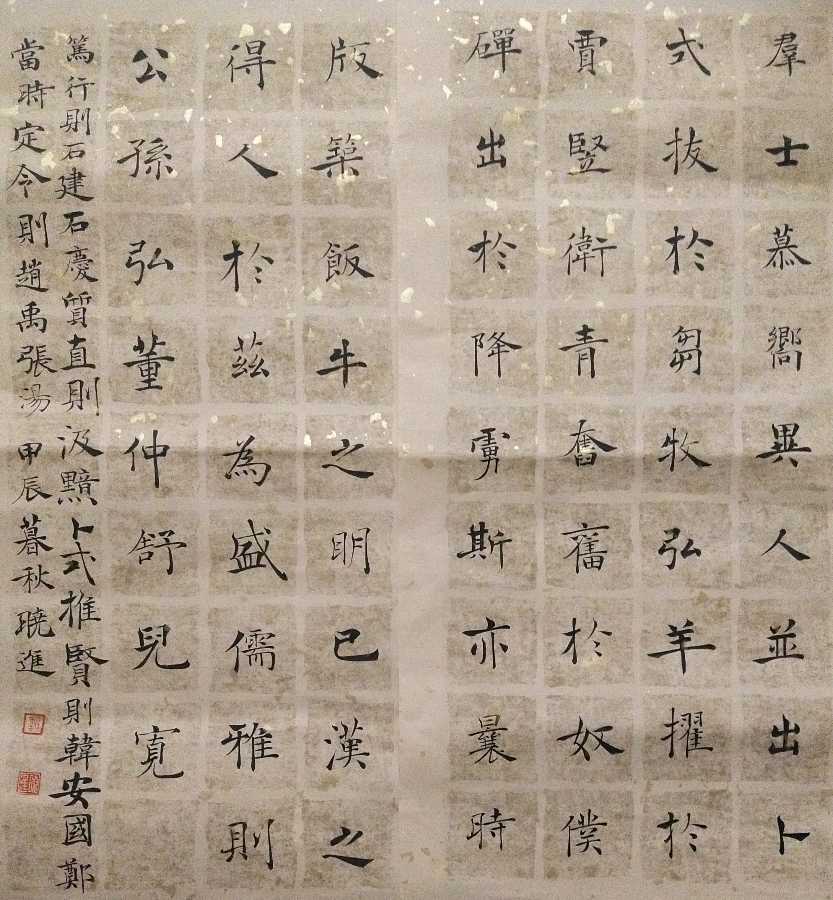 羣士慕嚮異人並出卜
式拔於芻牧弘羊擢於
賈豎衛青奮舊於奴僕
磾出於降虜斯亦曩時
版築飯牛之明已漢之
得人於茲為盛儒雅則
公孫弘董仲舒兒寬
篤行則石建石慶質直則汲黯卜式推賢則韓安國鄭
當時定令則趙禹張湯 甲辰暮秋曉進